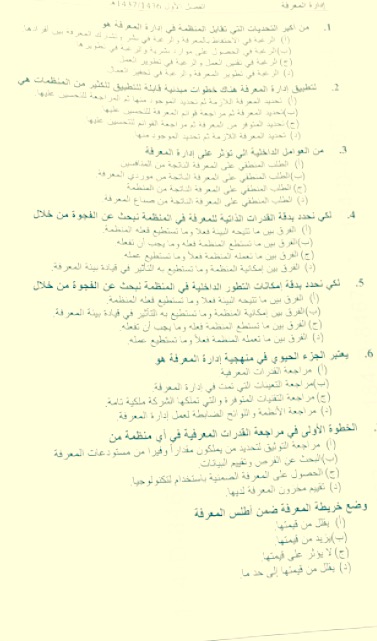 إدارة المعرفة الفصل الأول 1436/1437هـ
1. من أكبر التحديات التي تقابل المنظمة في إدارة المعرفة هو
أ) الرغبة في الاحتفاظ بالمعرفة والرغبة في نشر وتشارك المعرفة بين أفرادها.
ب) الرغبة في الحصول على موارد بشرية والرغبة في تطويرها
ج) الرغبة في تقييم العمل والرغبة في تطوير العمل
د) الرغبة في تطوير المعرفة والرغبة في تحفيز العمال
2. لتطبيق إدارة المعرفة هناك خطوات مبدئية قابلة للتطبيق لكثير من المنظمات هي
أ) تحديد المعرفة اللازمة ثم تحديد الموجود منها ثم المراجعة للتحسين عليها
ب) تحديد المعرفة ثم مراجعة قوائم المعرفة للتحسين عليها
ج) تحديد المتوفر من المعرفة ثم مراجعة القوائم للتحسين عليها
د) تحديد المعرفة اللازمة ثم تحديد الموجود منها
3. من العوامل الداخلية التي تؤثر على إدارة المعرفة
أ) الطلب المنطقي على المعرفة الناتجة من المنافسين
ب) الطلب المنطقي على المعرفة الناتجة من موردي المعرفة
ج) الطلب المنطقي على المعرفة الناتجة من المنظمة
د) الطلب المنطقي على المعرفة الناتجة من صناع المعرفة
4. لكي نحدد بدقة القدرات الذاتية للمعرفة في المنظمة نبحث عن الفجوة من خلال
أ) الفرق بين ما تتيحه البيئة فعلا وما تستطيع فعله المنظمة.
ب) الفرق بين ما تستطيع المنظمة فعله وما يجب أن تفعله
ج) الفرق بين ما تعمله المنظمة فعلا وما تستطيع عمله
د) الفرق بين إمكانية المنظمة وما تستطيع به التأثير في قيادة بيئة المعرفة.
5. لكي نحدد بدقة إمكانات التطور الداخلية في المنظمة نبحث عن الفجوة من خلال
أ) الفرق بين ما تتيحه البيئة فعلا وما تستطيع فعله المنظمة.
ب) الفرق بين إمكانية المنظمة وما تستطيع به التأثير في قيادة بيئة المعرفة.
ج) الفرق بين ما تستطيع المنظمة فعله وما يجب أن تفعله.
د) الفرق بين ما تعمله المنظمة فعلا وما تستطيع عمله.
6. يعتبر الجزء الحيوي في منهجية إدارة المعرفة هو
أ) مراجعة القدرات المعرفية
ب) مراجعة التعيينات التي تمت في إدارة المعرفة.
ج) مراجعة التقنيات المتوفرة والتي تمتلكها الشركة ملكية تامة.
د) مراجعة الأنظمة واللوائح الضابطة لعمل إدارة المعرفة.
الخطوة الأولى في مراجعة القدرات المعرفية في أي منظمة من
أ) مراجعة التوثيق لتحديد من يملكون مقدارا وفيرا من مستودعات المعرفة
ب) البحث عن الفرص وتقييم البيانات.
ج) الحصول على المعرفة الضمنية باستخدام لتكنولوجيا.
د) تقييم مخزون المعرفة لديها.
وضع خريطة المعرفة ضمن أطلس المعرفة
أ) يقلل من قيمتها.
ب) يزيد من قيمتها
ج) لا يؤثر على قيمتها
د) يقلل من قيمتها إلى حد ما.